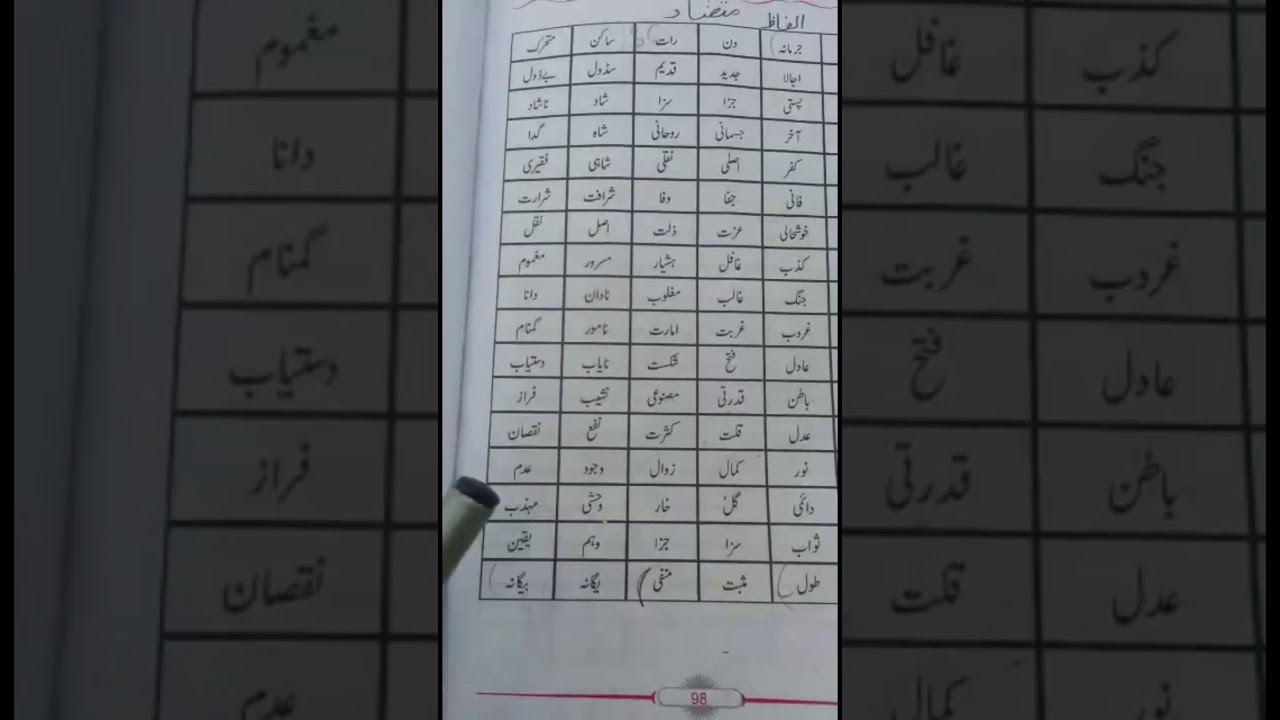 الفاظ متضاد
جرمانہ دن رات ساکن متحرک
اجالا جدید قدیم سڈول بےڈول
پستی جزا سزا شاد ناشاد
آخر جسمانی روحانی شاہ گدا
کفر اصلی نقلی شاہی فقیری
فانی جفا وفا شرافت شرارت
خوشحالی عزت ذلت اصل نقل
کذب غافل ہشیار مسرور مغموم
جنگ غالب مغلوب نادان دانا
غروب غربت امارت نامور گمنام
عادل فتح شکست نایاب دستیاب
باطن قدرتی مصنوعی نشیب فراز
عدل قلت کثرت نفع نقصان
نور کمال زوال وجود عدم
دائمی گل خار وحشی مہذب
ثواب سزا جزا وہم یقین
طول مثبت منفی یگانہ بیگانہ
98